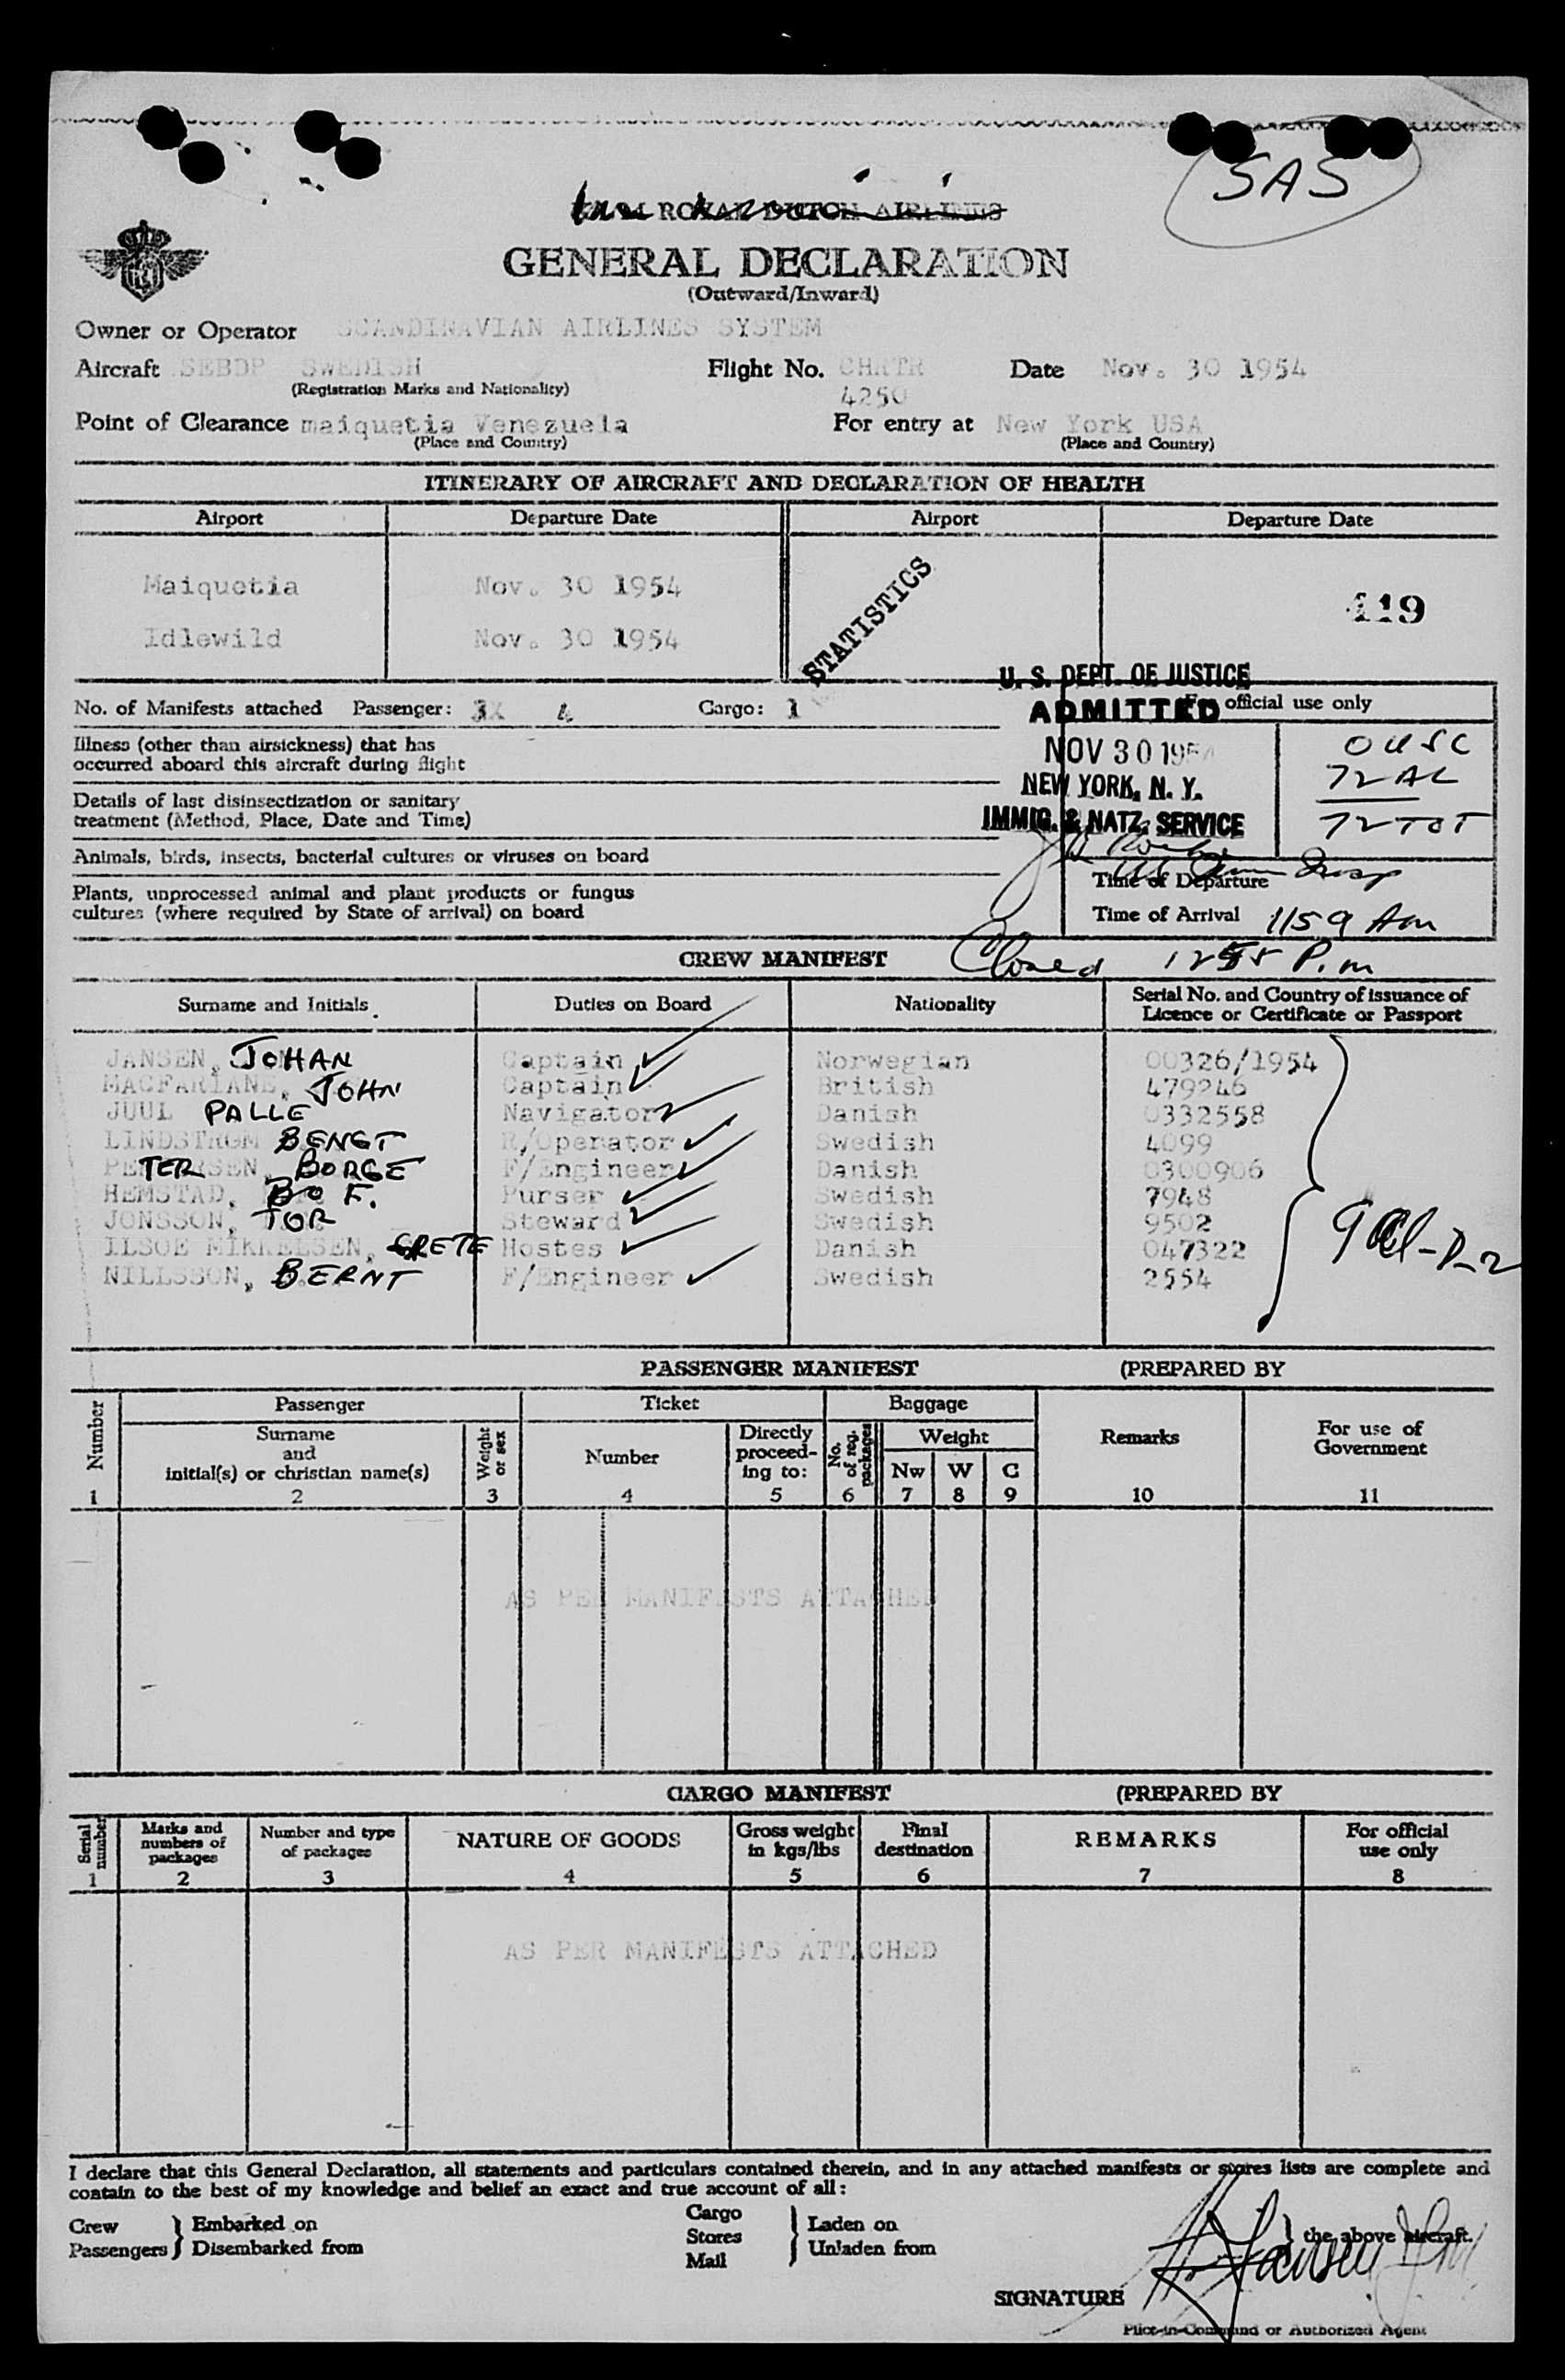 SAS
ROYAL DUTCH AIRLINES
GENERAL DECLARATION
(Outward/Inward)
Owner or Operator SCANDINAVIAN AIRLINES SYSTEM
Aircraft SEBDP SWEDISH Flight No. CHRTR Date Nov. 30 1954
(Registration Marks and Nationality) 4250
Point of Clearance maiquetia Venezuela For entry at New York USA
(Place and Country) (Place and Country)
ITINERARY OF AIRCRAFT AND DECLARATION OF HEALTH
Airport Departure Date Airport Departure Date
Maiquetia Nov. 30 1954
Idlewild Nov. 30 1954
STATISTICS
419
U. S. DEPT. OF JUSTICE
No. of Manifests attached Passenger: 4 Cargo: 1
ADMITTED official use only
NOV 30 195
NEW YORK, N. Y.
IMMIG. & NATZ. SERVICE
0 USC
72 AL
72 TOT
Illness (other than airsickness) that has
occurred aboard this aircraft during flight
Details of last disinsectization or sanitary
treatment (Method, Place, Date and Time)
Animals, birds, insects, bacterial cultures or viruses on board
Plants, unprocessed animal and plant products or fungus
cultures (where required by State of arrival) on board
Time of Departure
Time of Arrival 1159 Am
CREW MANIFEST Closed 1255 P.m
Surname and Initials. Duties on Board Nationality Serial No. and Country of issuance of
Licence or Certificate or Passport
JANSEN, JOHAN Captain Norwegian 00326/1954
MACFARLANE, JOHN Captain British 479246
JUUL PALLE Navigator Danish 0332558
LINDSTROM BENGT R/Operator Swedish 4099
PETERSEN, BORGE F/Engineer Danish 0300906
HEMSTAD, BO F. Purser Swedish 7948
JONSSON, TOR Steward Swedish 9502
ILSOE MIKKELSEN, GRETE Hostes Danish 047322
NILLSSON, BERNT F/Engineer Swedish 2554
PASSENGER MANIFEST (PREPARED BY
Number Passenger Ticket Baggage Remarks For use of
Government
Surname
and
initial(s) or christian name(s)
Weight or sex
Number
Directly
proceed-
ing to:
No. of reg. packages
Weight
Nw W C
1 2 3 4 5 6 7 8 9 10 11
AS PER MANIFESTS ATTACHED
CARGO MANIFEST (PREPARED BY
Serial number
Marks and
numbers of
packages
Number and type
of packages
NATURE OF GOODS
Gross weight
in kgs/lbs
Final
destination
REMARKS
For official
use only
1 2 3 4 5 6 7 8
AS PER MANIFESTS ATTACHED
I declare that this General Declaration, all statements and particulars contained therein, and in any attached manifests or stores lists are complete and
contain to the best of my knowledge and belief an exact and true account of all:
Crew
Passengers
Embarked on
Disembarked from
Cargo
Stores
Mail
Laden on
Unladen from
the above aircraft.
SIGNATURE
Pilot-in-Command or Authorized Agent